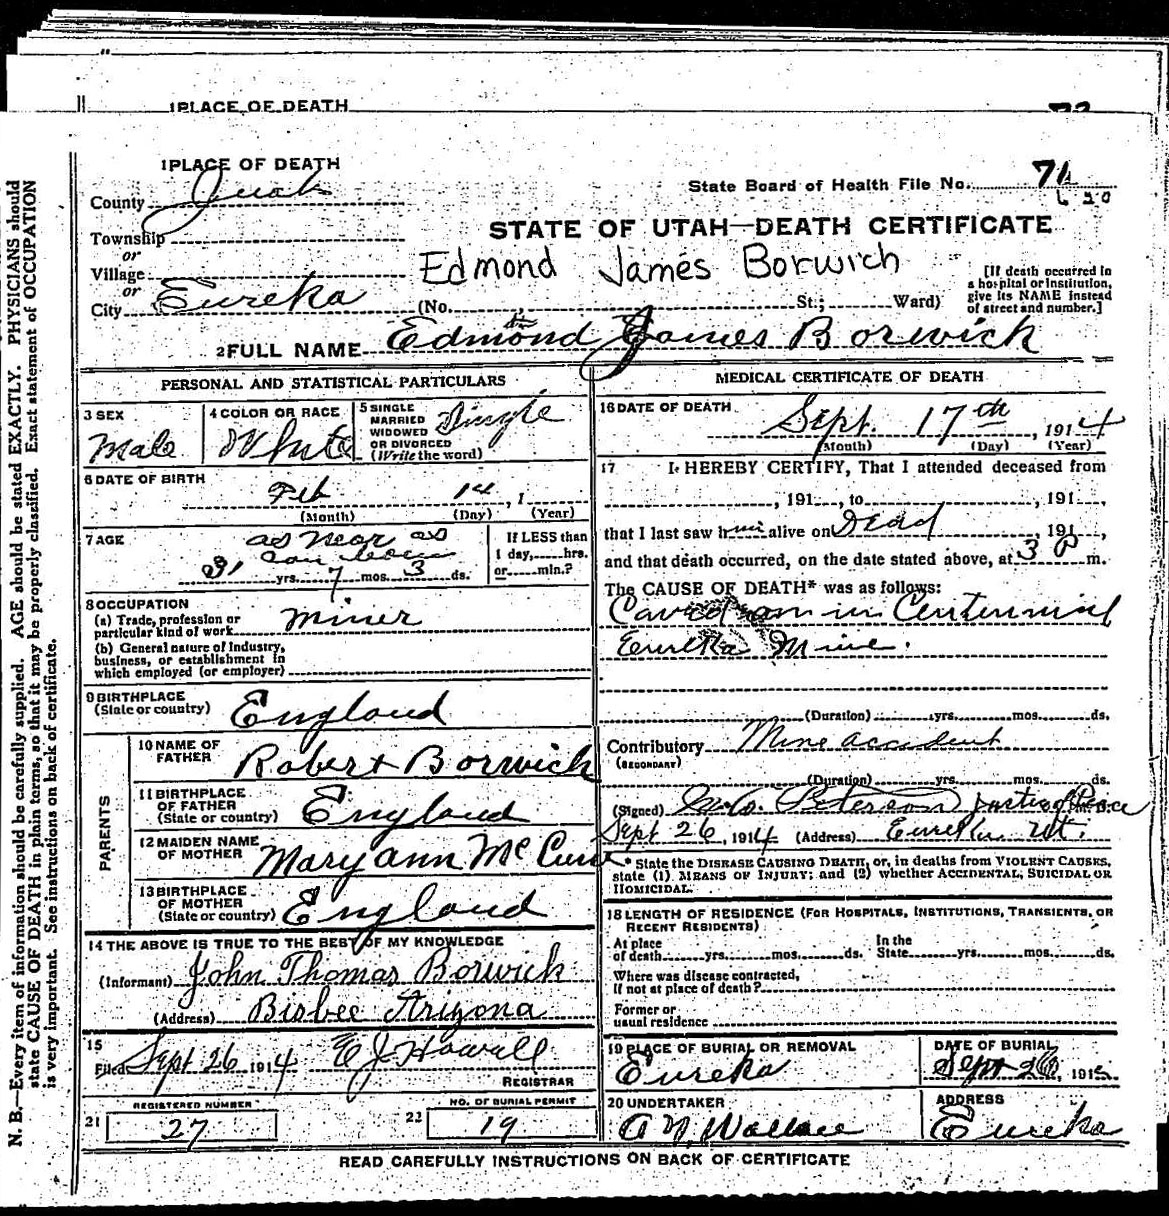 1 PLACE OF DEATH
1 PLACE OF DEATH
County Juab
State Board of Health File No. 71
Township
or
STATE OF UTAH—DEATH CERTIFICATE
Village
or
Edmond James Borwich
City Eureka (No. St.; Ward)
[If death occurred in
a hospital or institution,
give its NAME instead
of street and number.]
2 FULL NAME Edmond James Borwick
PERSONAL AND STATISTICAL PARTICULARS
3 SEX
Male
4 COLOR OR RACE
White
5 SINGLE
MARRIED
WIDOWED
OR DIVORCED
(Write the word)
Single
6 DATE OF BIRTH
Feb 14, 1
(Month) (Day) (Year)
7 AGE
as near as
can learn
31 yrs. 7 mos. 3 ds.
If LESS than
1 day, hrs.
or min.?
8 OCCUPATION
(a) Trade, profession or
particular kind of work Miner
(b) General nature of Industry,
business, or establishment in
which employed (or employer)
9 BIRTHPLACE
(State or country) England
PARENTS
10 NAME OF
FATHER Robert Borwick
11 BIRTHPLACE
OF FATHER
(State or country) England
12 MAIDEN NAME
OF MOTHER Mary ann
13 BIRTHPLACE
OF MOTHER
(State or country) England
14 THE ABOVE IS TRUE TO THE BEST OF MY KNOWLEDGE
(Informant) John Thomas Borwick
(Address) Bisbee Arizona
15
Filed Sept 26 1914 E J Howell
REGISTRAR
REGISTERED NUMBER
21 27
NO. OF BURIAL PERMIT
22 19
MEDICAL CERTIFICATE OF DEATH
16 DATE OF DEATH
Sept. 17th, 1914
(Month) (Day) (Year)
17 I HEREBY CERTIFY, That I attended deceased from
, 191 , to , 191 ,
that I last saw him alive on Dead , 191 ,
and that death occurred, on the date stated above, at 3 P m.
The CAUSE OF DEATH* was as follows:
Caved on in Centennial
Eureka Mine.
(Duration) yrs. mos. ds.
Contributory Mine accident
(SECONDARY)
(Duration) yrs. mos. ds.
(Signed) Peterson Justice of Peace
Sept 26, 1914 (Address) Eureka Ut.
* State the DISEASE CAUSING DEATH, or, in deaths from VIOLENT CAUSES,
state (1) MEANS OF INJURY; and (2) whether ACCIDENTAL, SUICIDAL OR
HOMICIDAL.
18 LENGTH OF RESIDENCE (FOR HOSPITALS, INSTITUTIONS, TRANSIENTS, OR
RECENT RESIDENTS)
At place
of death yrs. mos. ds.
In the
State yrs. mos. ds.
Where was disease contracted,
if not at place of death?
Former or
usual residence
19 PLACE OF BURIAL OR REMOVAL
Eureka
DATE OF BURIAL
Sept 26, 191
20 UNDERTAKER
Wallace
ADDRESS
Eureka
READ CAREFULLY INSTRUCTIONS ON BACK OF CERTIFICATE
N. B.—Every item of information should be carefully supplied. AGE should be stated EXACTLY. PHYSICIANS should
state CAUSE OF DEATH in plain terms, so that it may be properly classified. Exact statement of OCCUPATION
is very important. See instructions on back of certificate.